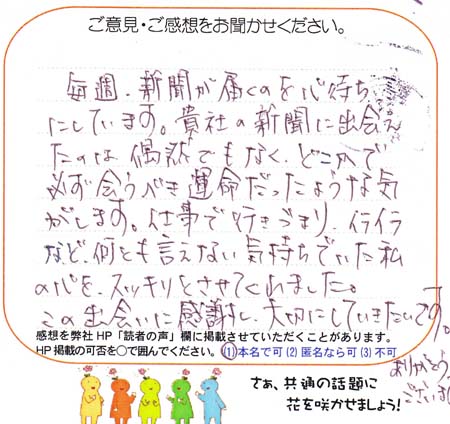 ご意見・ご感想をお聞かせください。
毎週、新聞が届くのを心待ち
にしています。貴社の新聞に出会え
たのは偶然でもなく、どこかで
必ず会うべき運命だったような気
がします。仕事で行きづまり、イライラ
など、何とも言えない気持ちでいた私
の心を、スッキリとさせてくれました。
この出会いに感謝し、大切にしていきたいです。
ありがとう
ございます
感想を弊社HP「読者の声」欄に掲載させていただくことがあります。
HP掲載の可否を○で囲んでください。(1)本名で可 (2) 匿名なら可 (3) 不可
さぁ、共通の話題に
花を咲かせましょう!